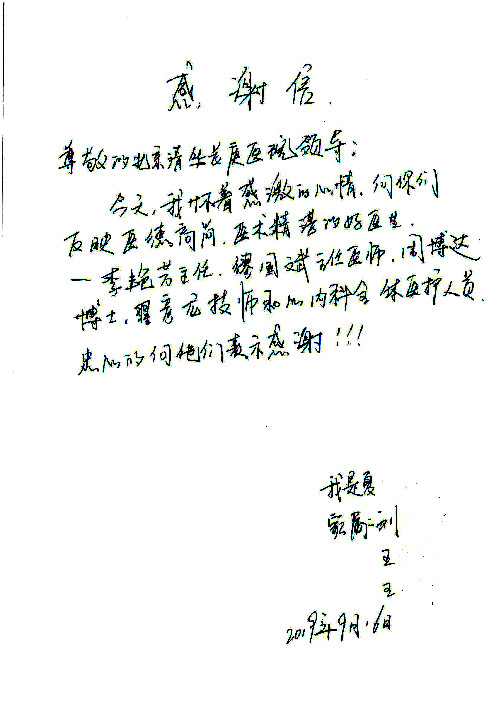 感谢信.
尊敬的北京清华长庚医院领导:
今天,我怀着感激的心情,向你们
反映医德高尚、医术精湛的好医生.
—李艳芳主任、国斌主任医师,周博达
博士,彦龙技师和心内科全体医护人员.
忠心的向他们表示感谢!!!
我是夏
家属:刘
王
王
2019年9月.6日